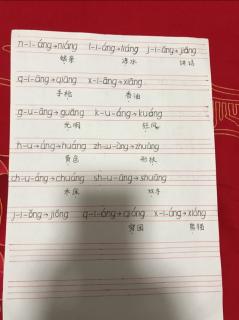 n-i-áng→niáng l-i-áng→liáng j-i-āng→jiāng
凉水
q-i-āng→qiāng x-i-āng→xiāng
手枪 香油
g-u-āng→guāng k-u-áng→kuáng
光明 狂风
h-u-áng→huáng zh-u-āng→zhuāng
黄色
ch-u-áng→chuáng sh-u-āng→shuāng
水床 双手
j-i-ǒng→jiǒng q-i-óng→qióng x-i-óng→xióng
穷困 熊猫